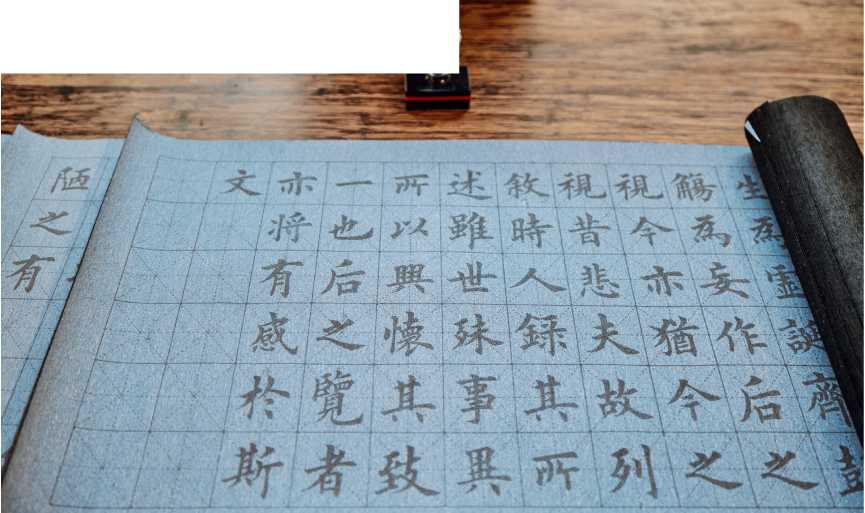 生為誕齊彭
觴為妄作后之
視今亦猶今之
視昔悲夫故列
敘時人録其所
述雖世殊事異
所以興懷其致
一也后之覽者
亦将有感於斯
文
陋之有